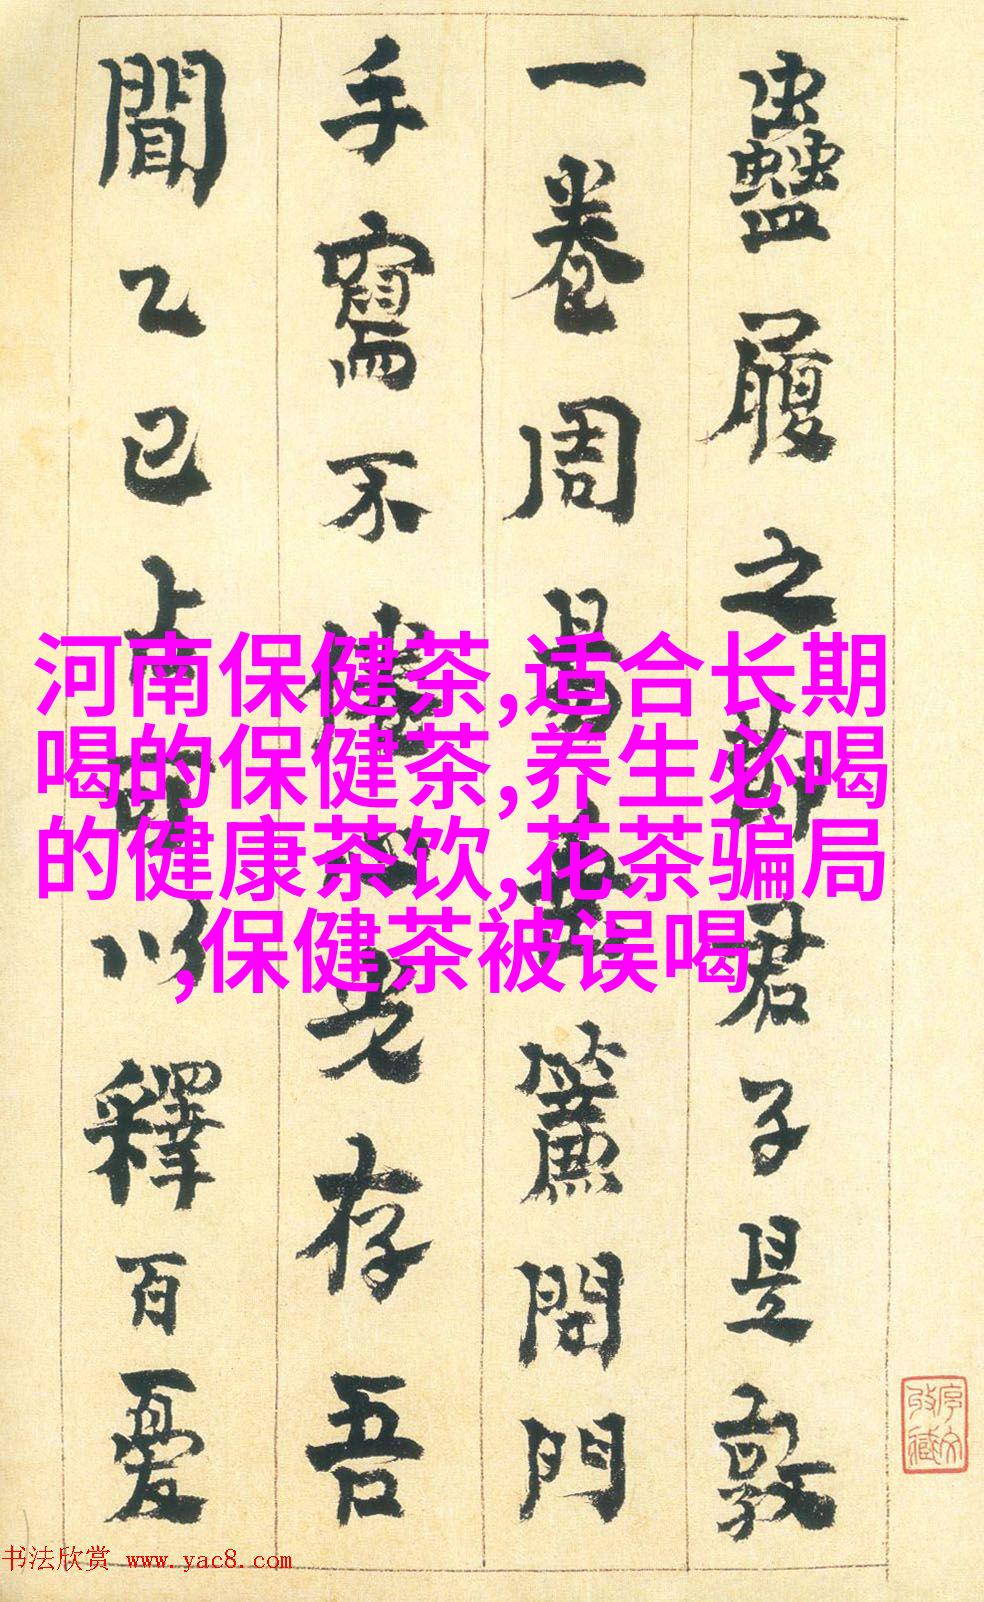 蠱履之節君子是敦
一卷周易簾閉門
手寫不倦老存吾
聞乙巳占可以釋百憂
河南保健茶,适合长期
喝的保健茶,养生必喝
的健康茶饮,花茶骗局
,保健茶被误喝
书法欣赏 www.yac8.com